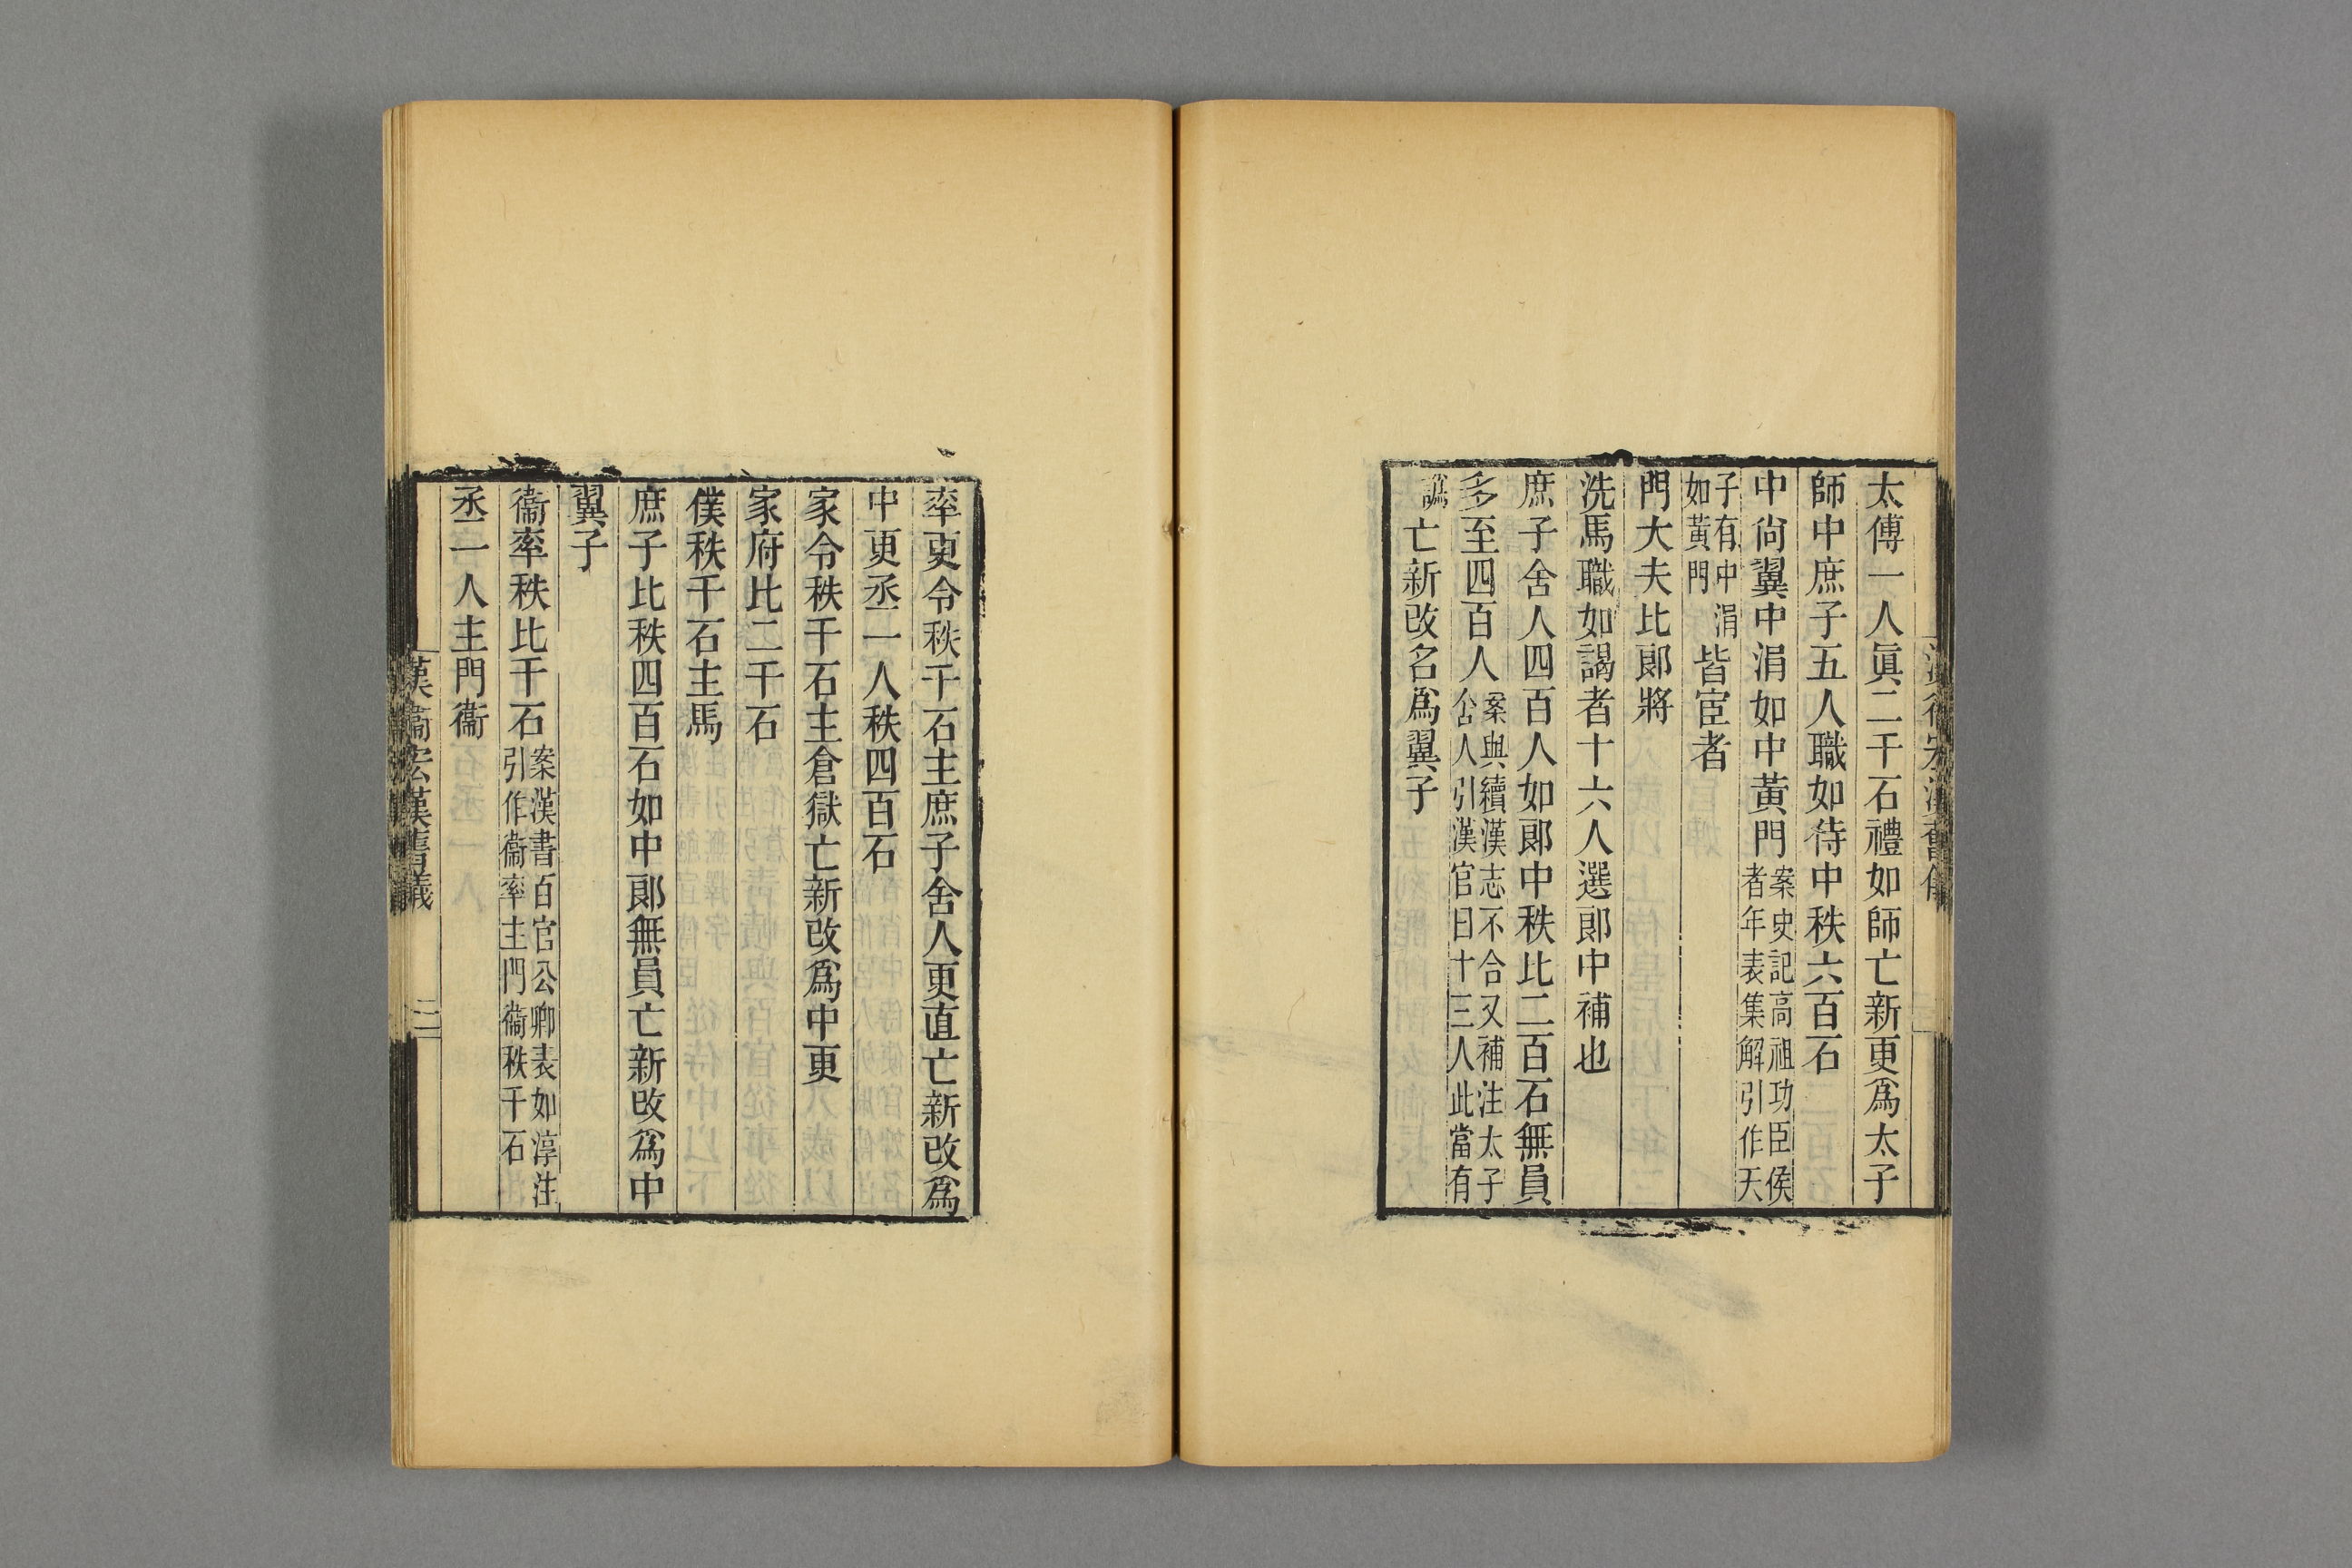 太傅一人眞二千石禮如師亡新更爲太子
師中庶子五人職如待中秩六百石
中尙翼中涓如中黃門案史記高祖功臣侯
者年表集解引作天
子有中涓
如黃門皆宦者
門大夫比郞將
洗馬職如謁者十六人選郞中補也
庶子舍人四百人如郞中秩比二百石無員
多至四百人案與續漢志不合又補注太子
舍人引漢官曰十三人此當有
譌亡新改名爲翼子
率更令秩千石主庶子舍人更直亡新改爲
中更丞一人秩四百石
家令秩千石主倉獄亡新改爲中更
家府比二千石
僕秩千石主馬
庶子比秩四百石如中郞無員亡新改爲中
翼子
衞率秩比千石案漢書百官公卿表如淳注
引作衞率主門衞秩千石
丞一人主門衞
漢衞宏漢舊儀